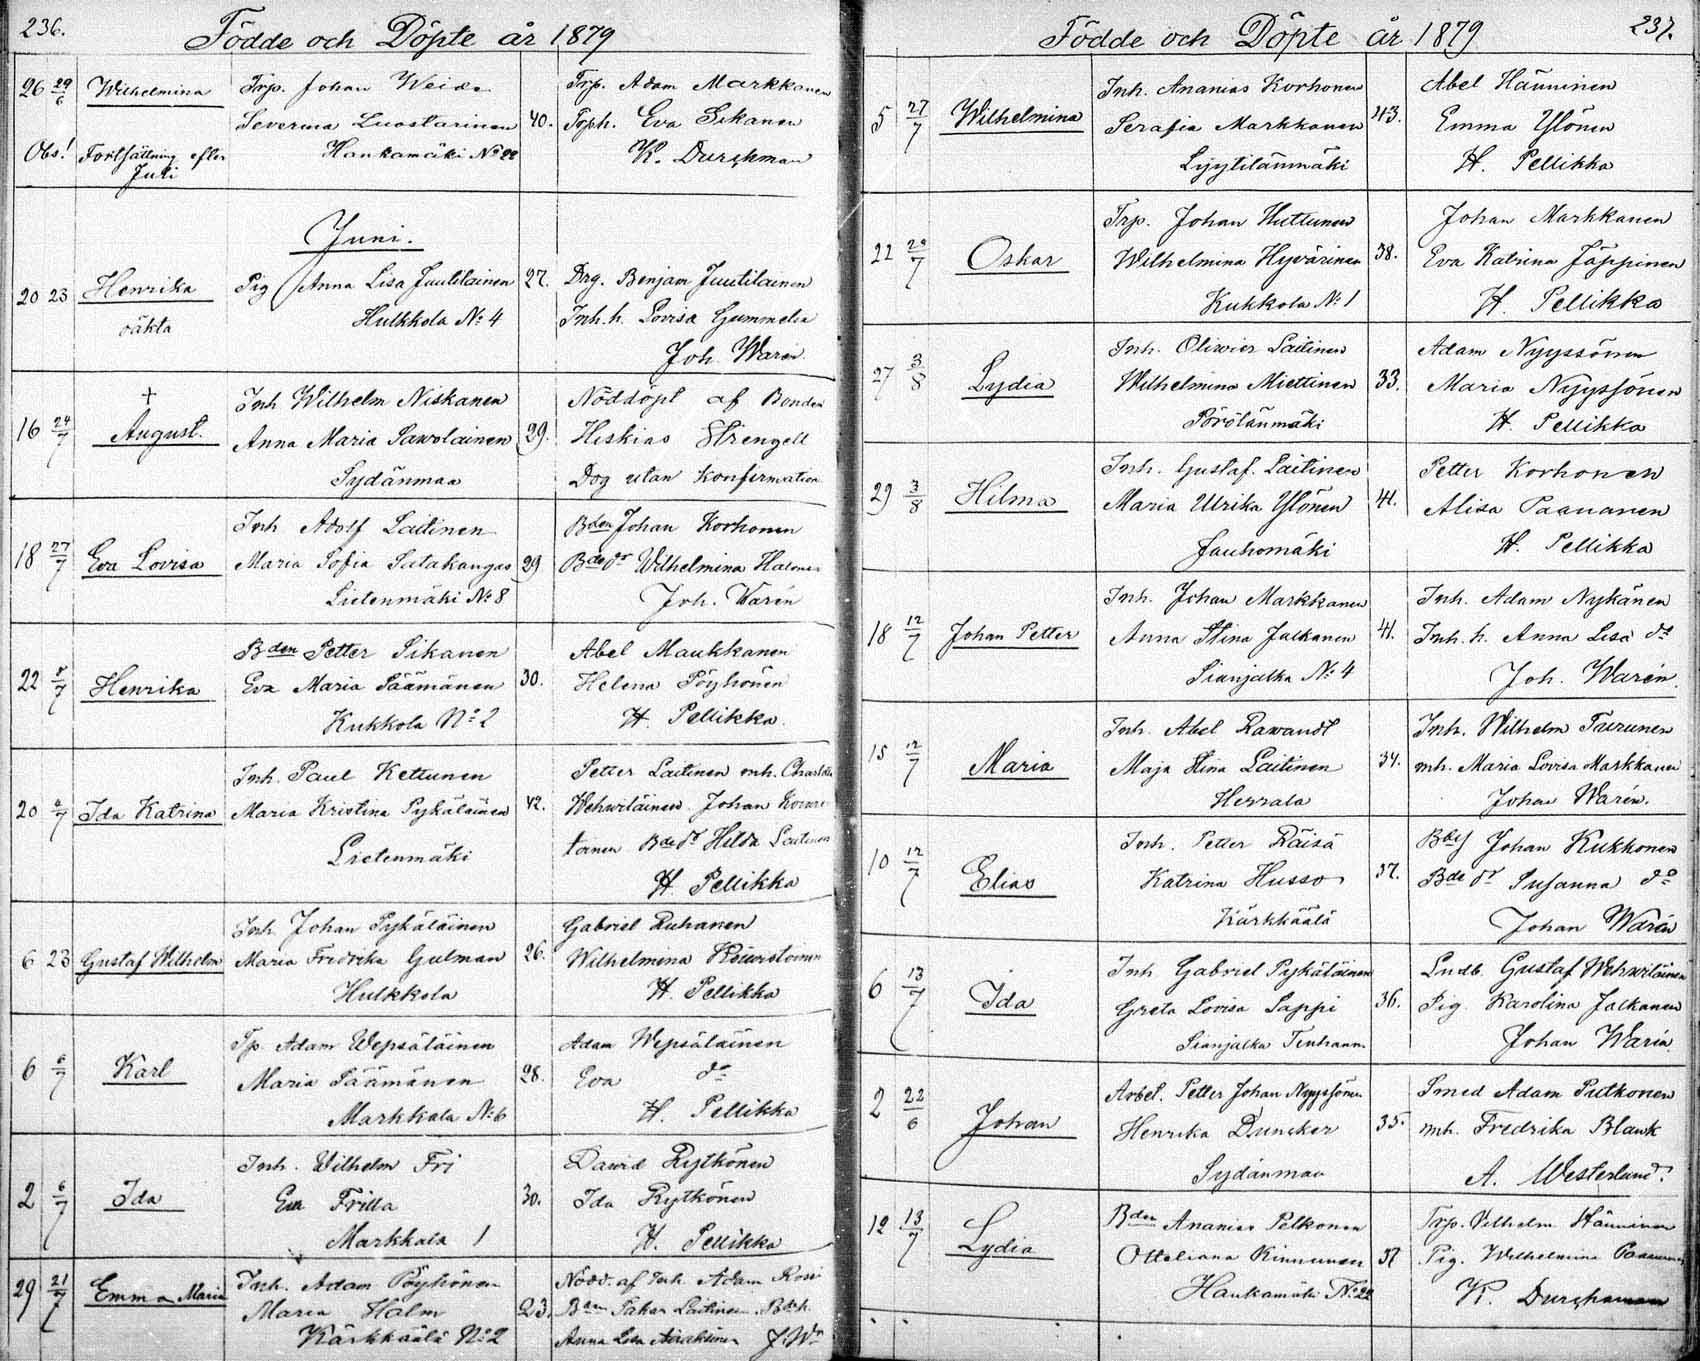 236.
Födde och Döpte år 1879
26 29/6 Wilhelmina Trp. Johan Weide Trp. Adam Markkanen
Severina Luostarinen 40. Toph. Eva Sikanen
Obs! Fortsättning efter Juli Haukamäki No 22 K. Durchman
Juni.
20 23 Henrika Pig Anna Lisa Juutilainen 27. Drg. Benjam Juutilainen
oäkta Hulkkola No 4 Inh. h. Lovisa Gummelin
Joh. Warén
+ Inh Wilhelm Niskanen Nöddöpt af Bonden
16 24/7 August. Anna Maria Sawolainen 29. Heskias Strengell
Sydänmaa Dog utan konfirmation
Inh Adolf Laitinen Bden Johan Korhonen
18 27/7 Eva Lovisa Maria Sofia Satakangas 29 Bdedr Wilhelmina Halonen
Lietenmäki No 8 Joh. Warén
Bden Petter Sikanen Abel Maukkanen
22 /7 Henrika Eva Maria Päämänen 30. Helena Pöyhönen
Kukkola No 2 H. Pellikka.
Inh. Paul Kettunen Petter Laitinen mh. Charlotta
20 /7 Ida Katrina Maria Kristina Pykäläinen 42. Wehwiläinen Johan
Lietenmäki toinen Bdedr Hilda Laitinen
H. Pellikka
Inh. Johan Pykäläinen Gabriel Ruhanen
6 23 Gustaf Wilhelm Maria Fredrika Gutman 26. Wilhelmina Kouvistoinen
Hulkkola H. Pellikka
Tp. Adam Wepsäläinen Adam Wepsäläinen
6 6/7 Karl Maria Päämänen 28. Eva do
Markkala No 6 H. Pellikka
Inh. Wilhelm Fri Dawid Rytkönen
2 6/7 Ida Eva Frilla 30. Ida Rytkönen
Markkala 1 H. Pellikka
Inh. Adam Pöyhönen Nödd. af Inh. Adam Rossi
29 21/7 Emma Maria Maria Halm 23. Laitinen
Kärkkäälä No 2 Anna Lisa J. Wn
237.
Födde och Döpte år 1879
Inh. Ananias Korhonen Abel Hänninen
5 27/7 Wilhelmina Serafia Markkanen 43. Emma Ylönen
Lyytilänmäki H. Pellikka
Trp. Johan Huttunen Johan Markkanen
22 29/7 Oskar Wilhelmina Hyvärinen 38. Eva Katrina Jäppinen
Kukkola No 1 H. Pellikka
Inh. Oliwier Laitinen Adam Nyyssönen
27 3/8 Lydia Wilhelmina Miettinen 33. Maria Nyyssönen
Pörölänmäki H. Pellikka
Inh. Gustaf. Laitinen Petter Korhonen
29 3/8 Hilma Maria Ulrika Ylönen 41. Alisa Paananen
Jauhomäki H. Pellikka
Inh. Johan Markkanen Inh. Adam Nykänen
18 12/7 Johan Petter Anna Stina Jalkanen 41. Inh. h. Anna Lisa do
Sianjalka No 4 Joh. Warén.
Inh. Abel Rawandt Inh. Wilhelm Turunen
15 12/7 Maria Maja Stina Laitinen 34. mh. Maria Lovisa Markkanen
Herrala Johan Warén.
Inh. Petter Räisä Johan Kukkonen
10 12/7 Elias Katrina Husso 37. Bdedr Susanna do
Kärkkäälä Johan Warén
Inh Gabriel Pykäläinen Lndb. Gustaf Wehwiläinen
6 13/7 Ida Greta Lovisa Lappi 36. Pig. Karolina Jalkanen
Sianjalka Tenhaan. Johan Warén.
Arbet. Petter Johan Nyyssönen Smed Adam Putkonen
2 22/6 Johan Henrika Duncker 35. mh. Fredrika Blank
Sydänmaa A. Westerlund.
Bden Ananias Pelkonen Trp. Vilhelm Hänninen
12 13/7 Lydia Otteliana Kinnunen 37 Pig. Wilhelmina Paananen
Haukamäki No 22 K. Durchman